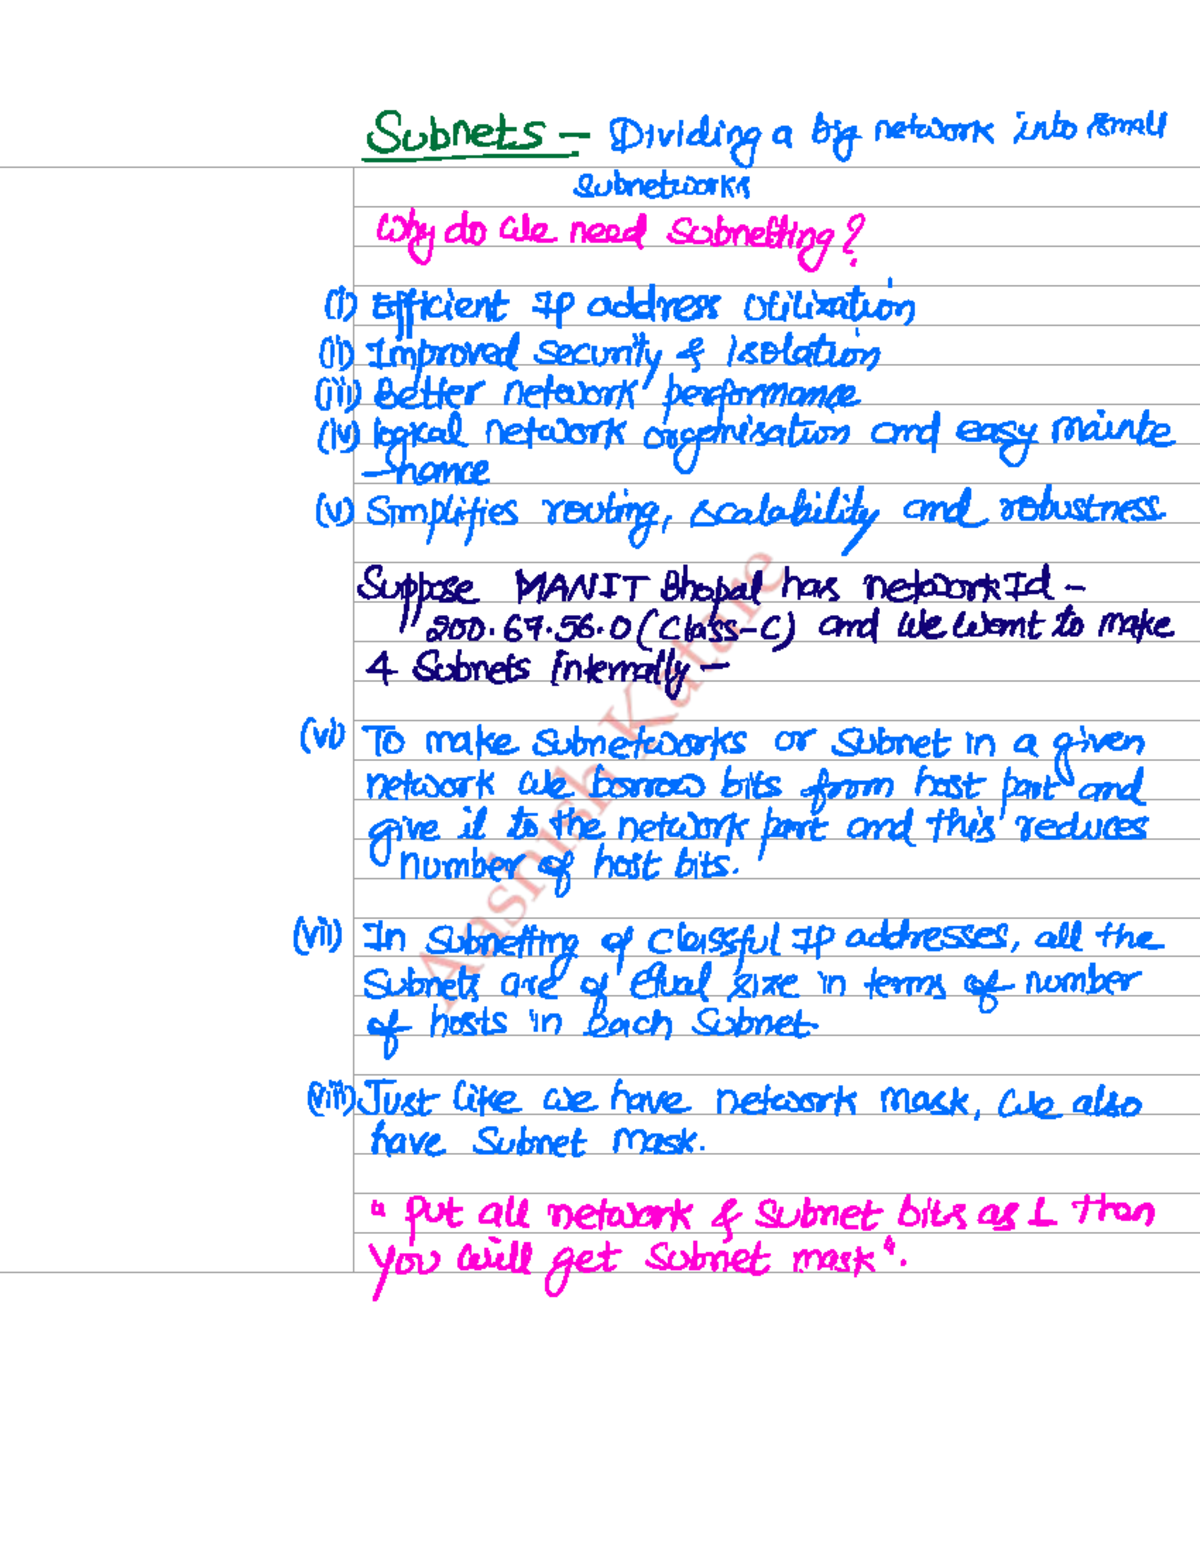 Subnets – Dividing a big network into small
subnetworks
Why do we need Subnetting?
(i) Efficient Ip address Utilization
(ii) Improved security & Isolation
(iii) Better network performance
(iv) logical network organisation and easy mainte
-nance
(v) Simplifies routing, scalability and robustness.
Suppose MANIT Bhopal has network Id -
200.67.56.0 (Class-C) and we want to make
4 Subnets Internally -
(vi) To make subnetworks or Subnet in a given
network we borrow bits from host part and
give it to the network part and this reduces
number of host bits.
(vii) In subnetting of classful Ip addresses, all the
Subnets are of Equal size in terms of number
of hosts in Each Subnet.
(viii) Just like we have network mask, we also
have Subnet mask.
"Put all network & Subnet bits as 1 than
you will get Subnet mask".
Aashish Katare